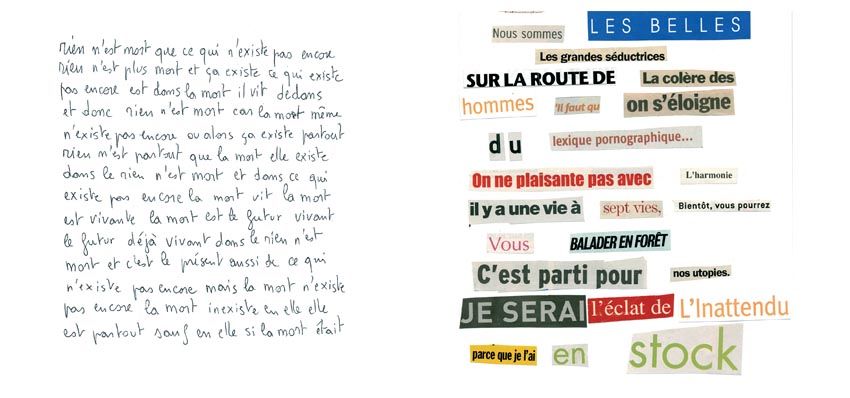 rien n'est mort que ce qui n'existe pas encore
rien n'est plus mort et ça existe ce qui existe
pas encore est dans la mort il vit dedans
et donc rien n'est mort car la mort même
n'existe pas encore ou alors ça existe partout
rien n'est partout que la mort elle existe
dans le rien n'est mort et dans ce qui
existe pas encore la mort vit la mort
est vivante la mort est le futur vivant
le futur déjà vivant dans le rien n'est
mort et c'est le présent aussi de ce qui
n'existe pas encore mais la mort n'existe
pas encore la mort inexiste en elle elle
est partout sauf en elle si la mort était
Nous sommes LES BELLES
Les grandes séductrices
SUR LA ROUTE DE La colère des
hommes 'Il faut qu on s'éloigne
du lexique pornographique...
On ne plaisante pas avec L'harmonie
il y a une vie à sept vies, Bientôt, vous pourrez
Vous BALADER EN FORÊT
C'est parti pour nos utopies.
JE SERAI l'éclat de L'Inattendu
parce que je l'ai en stock